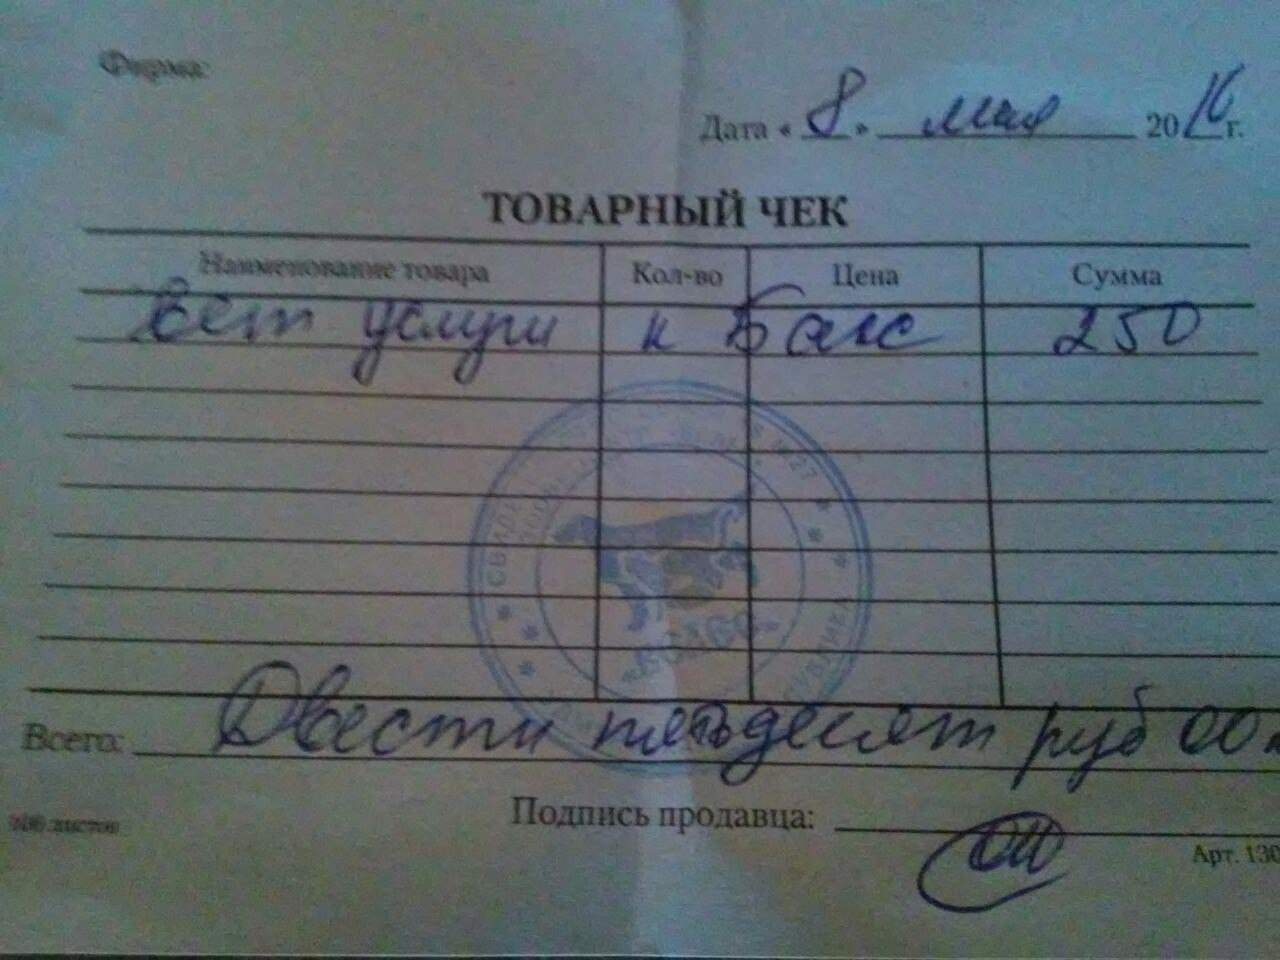 Фирма:
Дата « 8 » мая 2016 г.
ТОВАРНЫЙ ЧЕК
Наименование товара Кол-во Цена Сумма
вет услуги к Бакс 250
Всего: Двести пятьдесят руб 00 к
Подпись продавца:
100 листов
Арт. 130